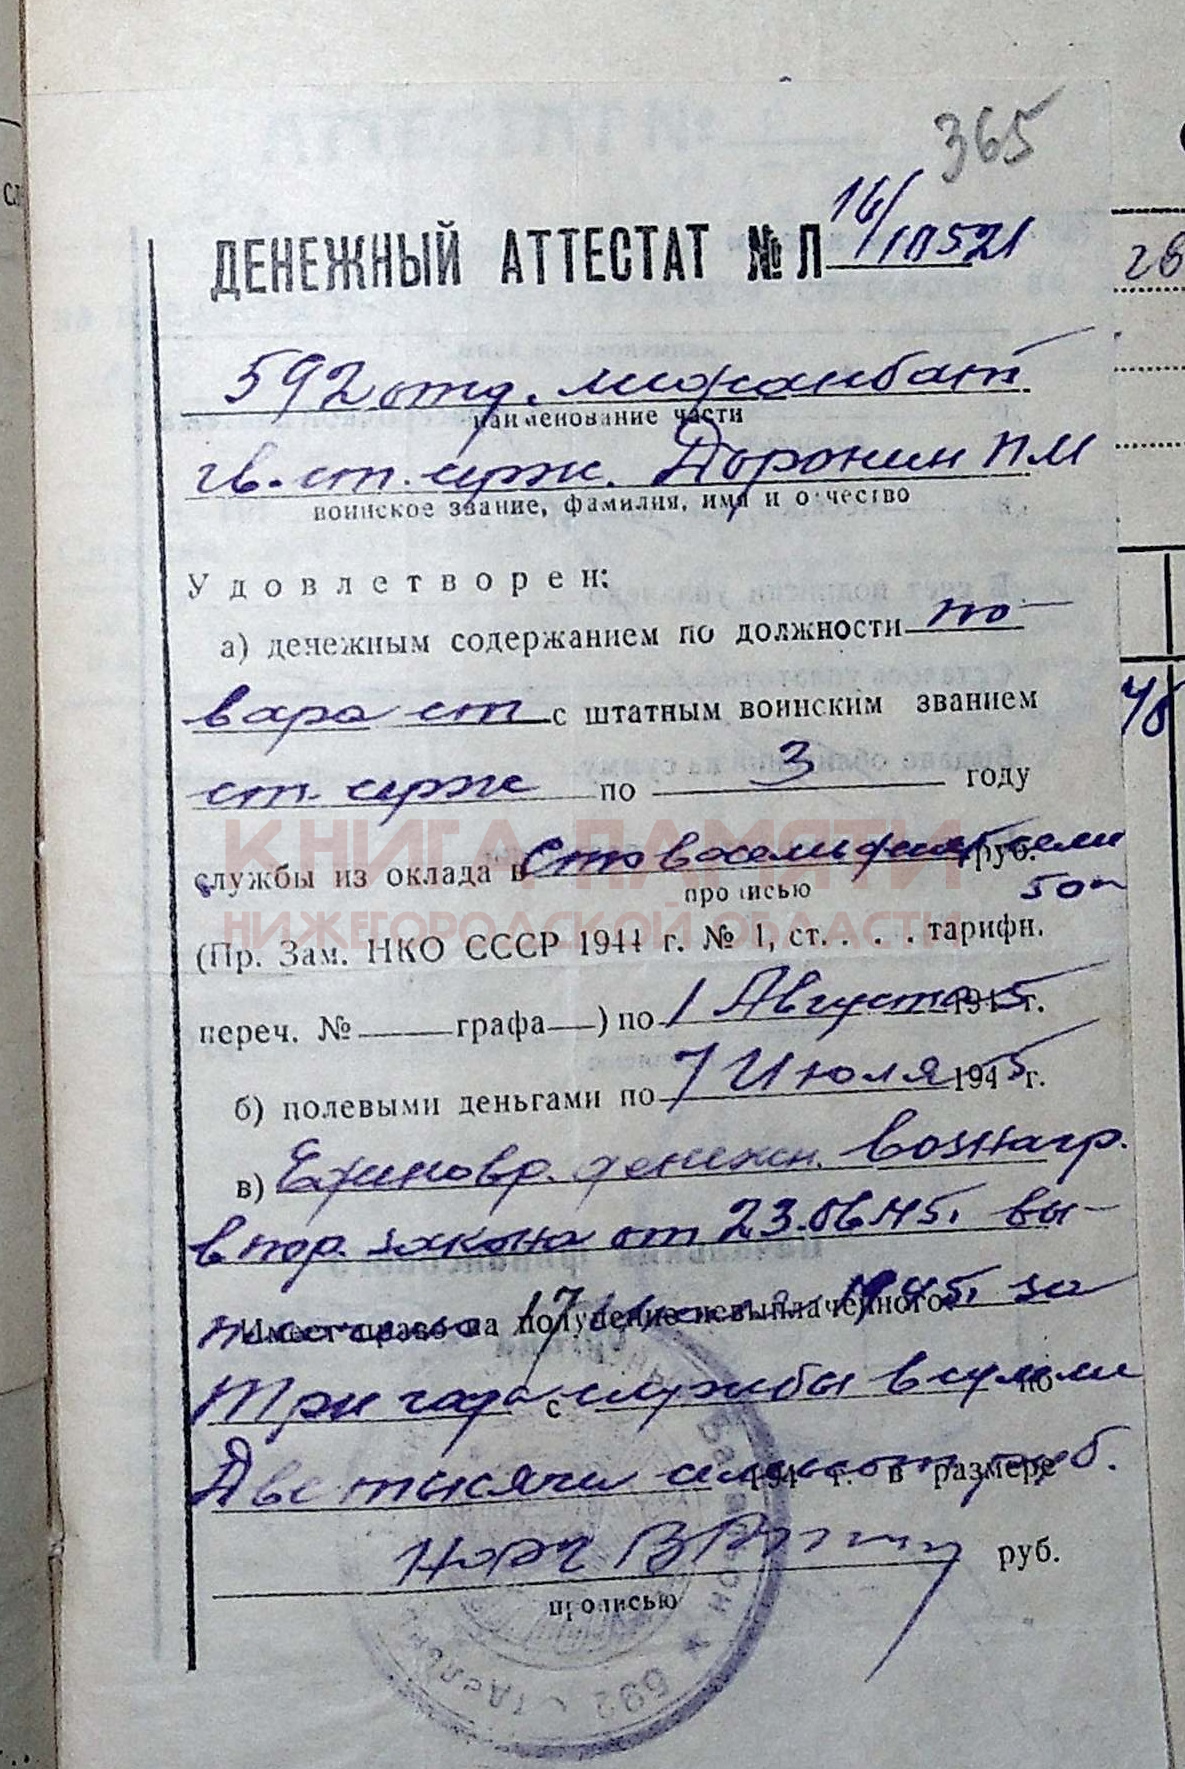 365
ДЕНЕЖНЫЙ АТТЕСТАТ № Л 16/10521
592 отд. медсанбат
наименование части
гв. ст. серж. Доронин П М
воинское звание, фамилия, имя и отчество
Удовлетворен:
а) денежным содержанием по должности по-
вара ст с штатным воинским званием
ст. серж по 3 году
службы из оклада в Сто восемьдесят семь руб.
прописью 50 к
КНИГА ПАМЯТИ
НИЖЕГОРОДСКОЙ ОБЛАСТИ
(Пр. Зам. НКО СССР 1944 г. № 1, ст. . . . тарифн.
переч. № графа ) по 1 Августа 1945 г.
б) полевыми деньгами по 7 Июля 1945 г.
в) Единовр. денежн. вознагр.
в пор. закона от 23.06.45. вы-
Имеет право на получение невыплаченного 17 1945. за
Три года службы в сумме
с по
Две тысячи руб.
194 г. в размере
руб.
прописью
гв